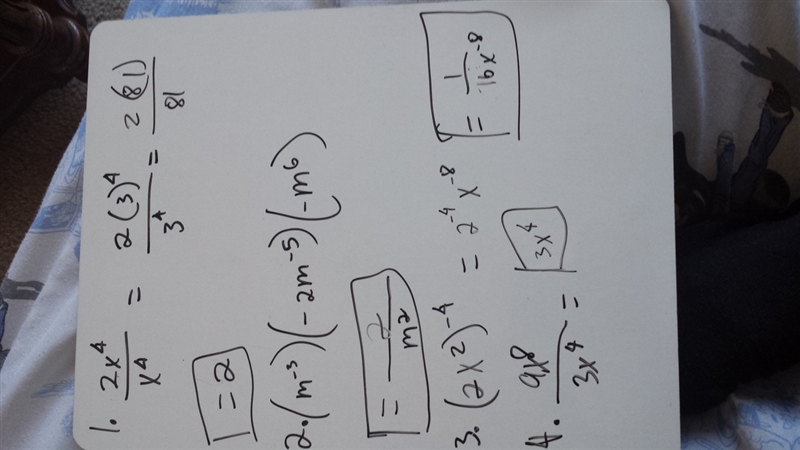 1. 2x⁴/x⁴ = 2(3)⁴/3⁴ = 2(81)/81
= 2
2. (m⁻³)(-2m⁻⁵)(-m⁶)
= 2/m2
3. (2x2)⁻⁴ = 2⁻⁴x⁻⁸ = 1/16x⁻⁸
4. 9x8/3x⁴ = 3x⁴